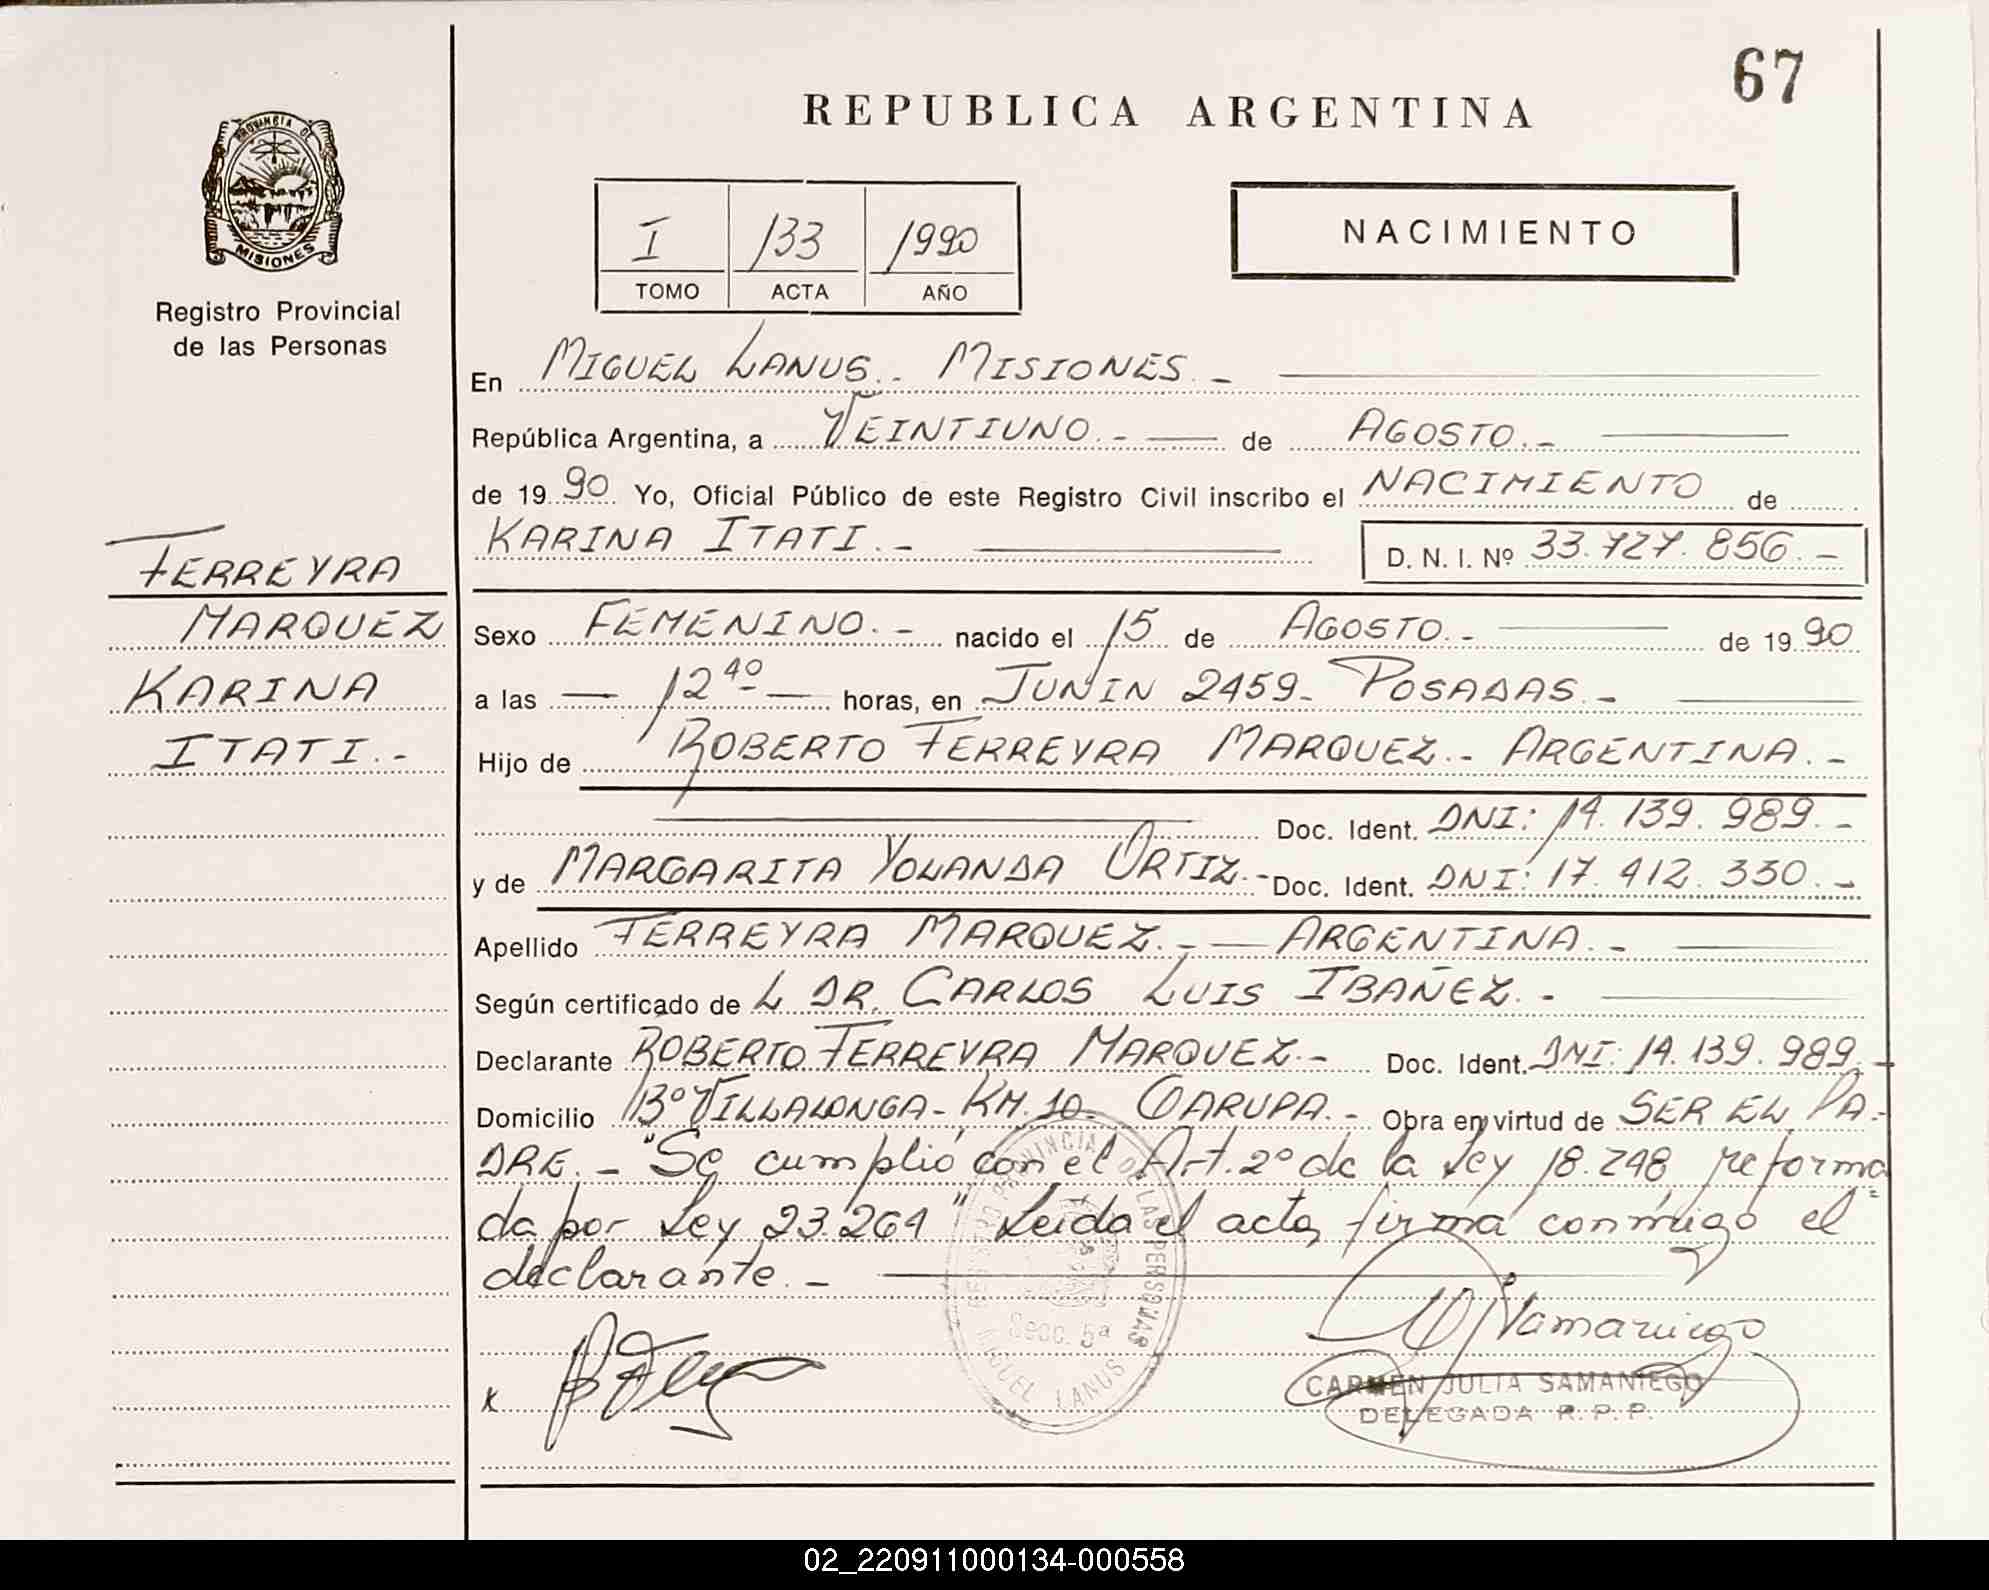 67
REPUBLICA ARGENTINA
PROVINCIA DE
MISIONES
Registro Provincial
de las Personas
I 133 1990
TOMO ACTA AÑO
NACIMIENTO
En MIGUEL LANUS.- MISIONES.-
República Argentina, a VEINTIUNO.- de AGOSTO.-
de 1990 Yo, Oficial Público de este Registro Civil inscribo el NACIMIENTO de
KARINA ITATI.- D. N. I. Nº 33.727.856.-
FERREYRA
MARQUEZ
KARINA
ITATI.-
Sexo FEMENINO.- nacido el 15 de AGOSTO.- de 1990
a las — 12 40 — horas, en JUNIN 2459- POSADAS.-
Hijo de ROBERTO FERREYRA MARQUEZ.- ARGENTINA.-
Doc. Ident. DNI: 14.139.989.-
y de MARGARITA YOLANDA ORTIZ.- Doc. Ident. DNI: 17.412.330.-
Apellido FERREYRA MARQUEZ.- — ARGENTINA.-
Según certificado de L DR. CARLOS LUIS IBAÑEZ.-
Declarante ROBERTO FERREYRA MARQUEZ.- Doc. Ident. DNI: 14.139.989.-
Domicilio Bº VILLALONGA- KM. 10- GARUPA.- Obra en virtud de SER EL PA-
DRE.- "Se cumplió con el Art. 2º de la Ley 18.248 reforma=
da por Ley 23.264" Leida el acta, firma conmigo el
declarante.-
REGISTRO PROVINCIAL DE LAS PERSONAS
Secc. 5ª
MIGUEL LANUS
x
CARMEN JULIA SAMANIEGO
DELEGADA R. P. P.
02_220911000134-000558